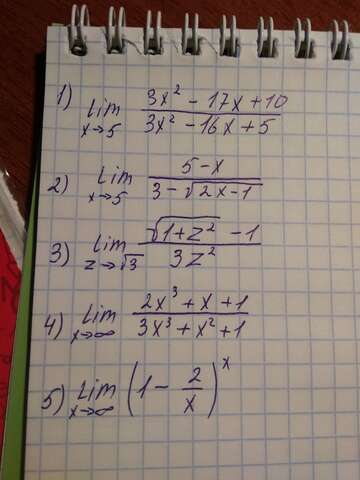 1) lim x→5 (3x² - 17x + 10)/(3x² - 16x + 5)
2) lim x→5 (5-x)/(3-√(2x-1))
3) lim z→√3 (√(1+z²) - 1)/(3z²)
4) lim x→∞ (2x³ + x + 1)/(3x³ + x² + 1)
5) lim x→∞ (1 - 2/x)^x